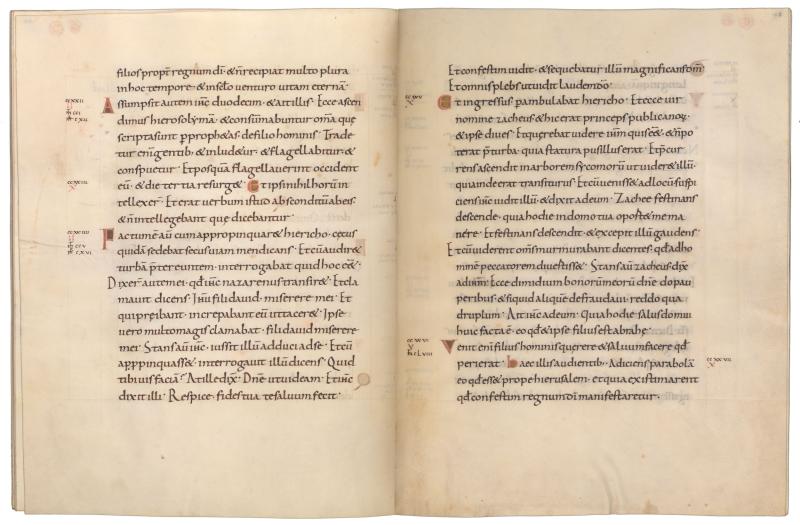 filios propt̄ regnum dī · & n̄ recipiat multo plura
in hoc tempore · & in sclō venturo uitam eternā ·
Assumpsit autem ihc̄ duodecim · & ait illis · Ecce ascen
dimus hierosolymā · & consūmabuntur om̄a que
scripta sunt p prophetas de filio hominis · Trade
tur enī gentib; & inlud&ur · & flagellabitur · &
conspuetur · Et posquā flagellauerint occident
eū · & die tertia resurg& · Et ipsi nihil horū in
tellexer̄ · Et erat uerbum istud absconditū ab eis ·
& n̄ intellegebant que dicebantur ·
Factum ē aū cum appropinquar& hiericho · cecus
quidā sedebat secus uiam mendicans · Et cū audir&
turbā pr̄tereuntem · interrogabat quid hoc eē& ·
Dixer̄ autem ei · qd̄ ihc̄ nazarenus transir& · Et cla
mauit dicens · Ihū fili dauid · miserere mei · Et
qui preibant · increpabant eū ut tacer& · Ipse
uero multo magis clamabat · fili dauid miserere
mei · Stans aū ihc̄ · iussit illū adduci ad se · Et cū
appropinquass& · interrogauit illū dicens · Quid
tibi uis faciā · At ille dix̄ · Dn̄e ut uideam · Et ihc̄
dixit illi · Respice · fides tua te saluum fecit ·
Et confestim uidit · & sequebatur illū magnificans dm̄ ·
Et omnis plebs ut uidit laudem dō ·
Et ingressus pambulabat hiericho · Et ecce uir
nomine zacheus & hic erat princeps publicanoꝝ ·
& ipse diues · Et querebat uidere ihm̄ quis eē& · & n̄ po
terat p̄ turba · quia statura pusillus erat · Et p̄cur
rens ascendit in arborem sycomorū ut uider& illū ·
quia inde erat transiturus · Et cū uenis& ad locū suspi
ciens ihc̄ uidit illū & dixit ad eum · Zachee festinans
descende · quia hodie in domo tua oport& me ma
nere · Et festinans descendit · & excepit illū gaudens ·
Et cū uiderent om̄s murmurabant dicentes · qd̄ ad ho
minē peccatorem diuertiss& · Stans aū zacheus dix̄
ad ihm̄ · Ecce dimidium bonorū meorū dn̄e · do pau
peribus · & si quid aliquē defraudaui · reddo qua
druplum · Ait ihc̄ ad eum · Quia hodie salus domui
huic facta ē · eo qd̄ & ipse filius est abrahę ·
Venit enī filius hominis querere & saluum facere qd̄
perierat · Haec illis audientib; · Adiciens parabolā
eo qd̄ ess& prope hierusalem · et quia existimarent
qd̄ confestim regnum dī manifestaretur ·